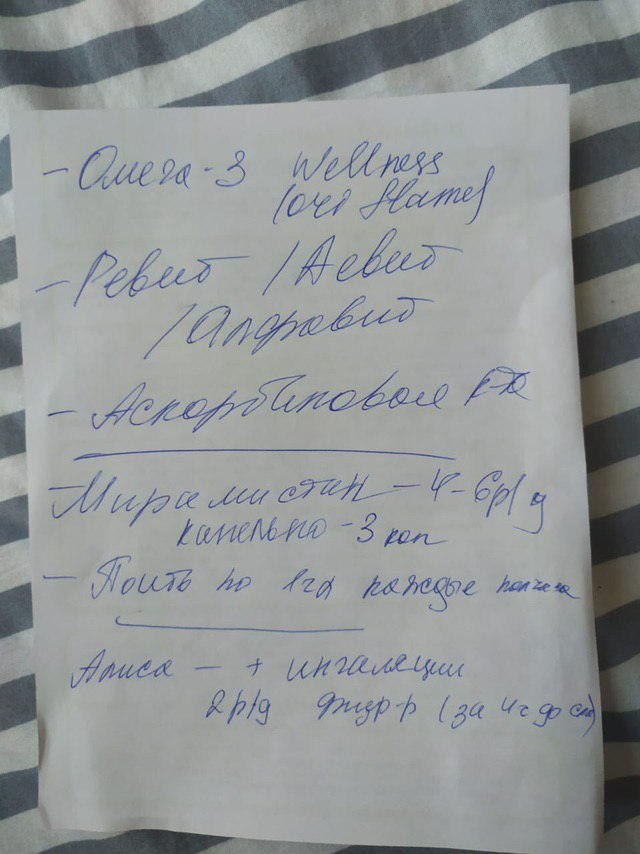 - Омега-3 Wellness
- Ревит / Аевит
/ Алфавит
- Аскорбиновая к-та
- Мирамистин - 4-6 р/д
капельно - 3 кап
- Поить по 1 чл каждые полчаса
Алиса - + ингаляции
2 р/д физ р-р (за 4ч до сна)